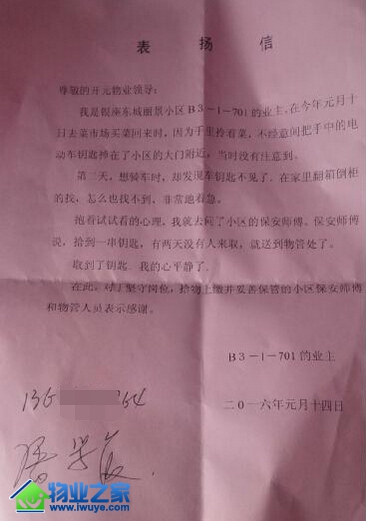 表 扬 信
尊敬的开元物业领导:
我是银座东城丽景小区B3-1-701的业主,在今年元月十
日去菜市场买菜回来时,因为手里拎着菜,不经意间把手中的电
动车钥匙掉在了小区的大门附近,当时没有注意到。
第二天,想骑车时,却发现车钥匙不见了,在家里翻箱倒柜
的找,怎么也找不到,非常地着急。
抱着试试看的心理,我就去问了小区的保安师傅。保安师傅
说,拾到一串钥匙,有两天没有人来取,就送到物管处了。
取到了钥匙,我的心平静了。
在此,对于坚守岗位,拾物上缴并妥善保管的小区保安师傅
和物管人员表示感谢。
B3-1-701的业主
二0一六年元月十四日
136
64
物业之家
www.iwuye.com